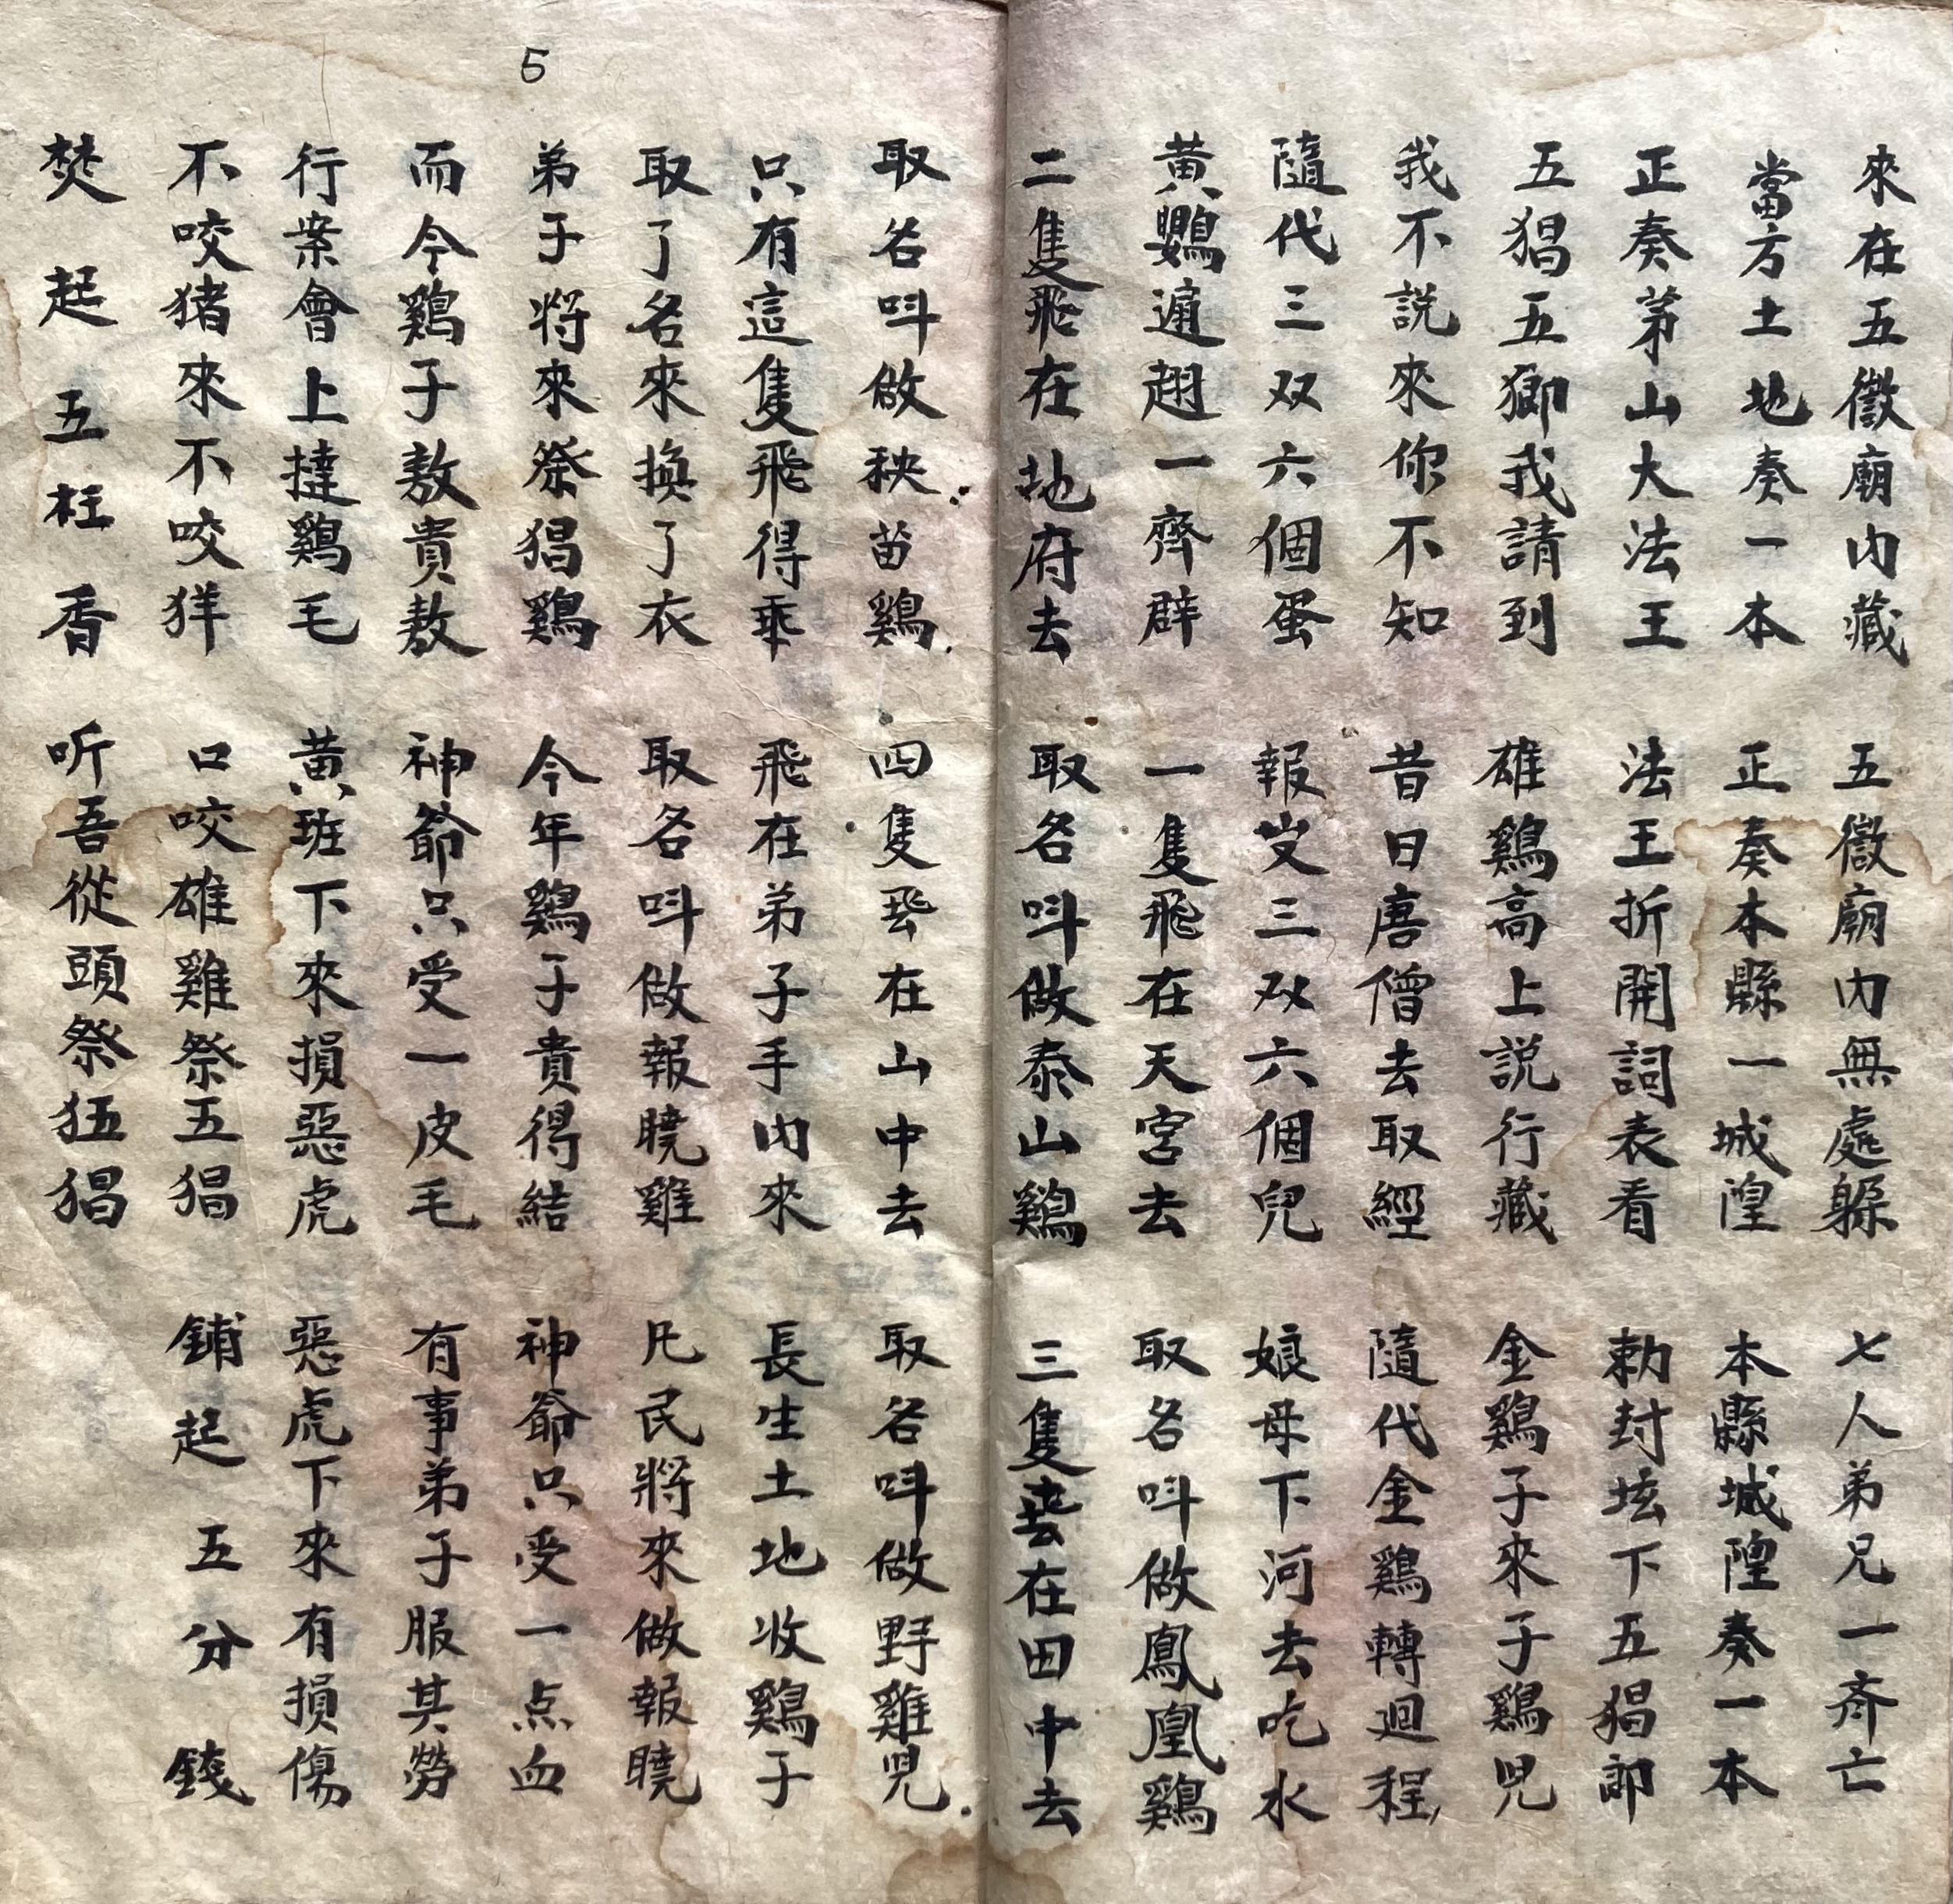 來在五徽廟內藏　五徽廟內無處躲　七人弟兄一齐亡
當方土地奏一本　正奏本縣一城隍　本縣城隍奏一本
正奏茅山大法王　法王折開詞表看　勅封坛下五猖郎
五猖五郷我請到　雄鷄高上説行藏　金鷄子來子鷄児
我不説來你不知　昔日唐僧去取經　隨代金鷄轉迴程
隨代三双六個蛋　報㞮三双六個兒　娘母下河去吃水
黄鸚遍翅一齊辟　一隻飛在天宮去　取名呌做鳳凰鷄
二隻飛在地府去　取名呌做泰山鷄　三隻飛在田中去
5
取名呌做秧苗鷄　四隻飛在山中去　取名呌做野雞児
只有這隻飛得乖　飛在弟子手內來　長生土地收鷄子
取了名來換了衣　取名呌做報曉雞　凡民將來做報曉
弟子将來祭猖鷄　今年鷄子貴得結　神爺只受一点血
而今鷄子敖貴敖　神爺只受一皮毛　有事弟子服其勞
行案會上撻鷄毛　黄班下來損惡虎　惡虎下來有損傷
不咬猪來不咬羊　口咬雄雞祭五猖　鋪起五分錢
焚起五枉香　听吾從頭祭狂猖